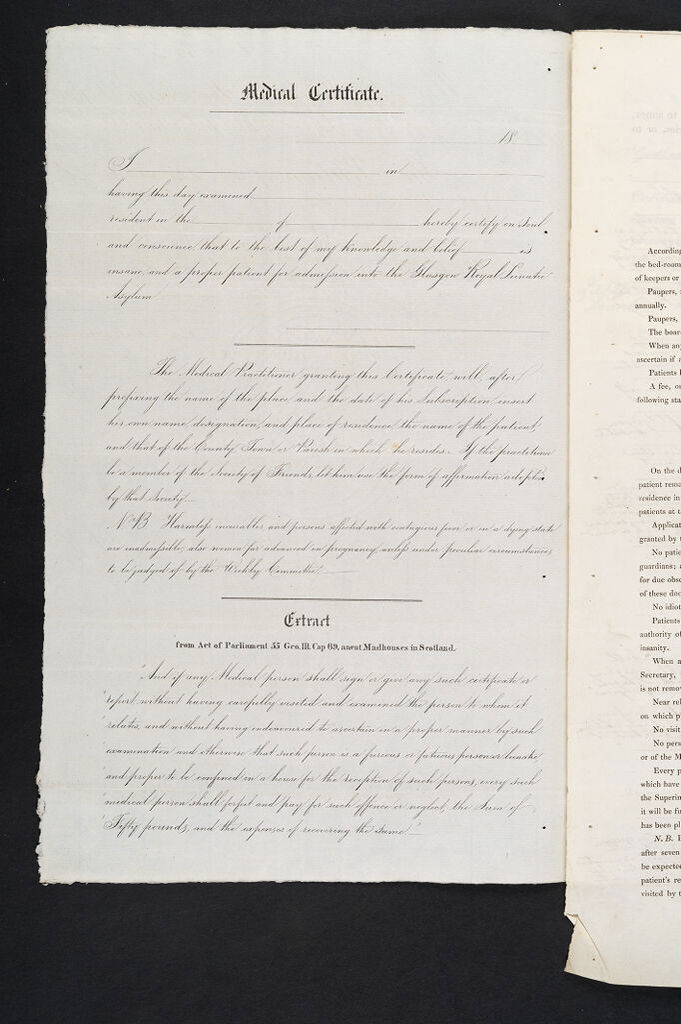 Medical Certificate.
18
I in
having this day examined
resident in the of hereby certify on Soul
and conscience that to the best of my knowledge and belief is
insane and a proper patient for admission into the Glasgow Royal Lunatic
Asylum
The Medical Practitioner granting this Certificate will, after
prefixing the name of the place and the date of his Subscription, insert
his own name, designation, and place of residence, the name of the patient,
and that of the County, Town or Parish in which he resides. If the practitioner
be a member of the Society of Friends, let him use the form of affirmation adopted
by that Society.
N.B. Harmless incurables and persons affected with contagious fever or in a dying state
are inadmissible, also women far advanced in pregnancy, unless under peculiar circumstances,
to be judged of by the Weekly Committee.
Extract
from Act of Parliament 55 Geo. III. Cap 69, anent Madhouses in Scotland.
"And if any Medical person shall sign or give any such certificate or
"report, without having carefully visited and examined the person to whom it
"relates, and without having endeavoured to ascertain in a proper manner by such
"examination and otherwise that such person is a furious or fatuous person or lunatic,
"and proper to be confined in a house for the reception of such persons, every such
"medical person shall forfeit and pay for such offence or neglect, the Sum of
"Fifty pounds, and the expenses of recovering the same."
According
the bed-room
of keepers or
Paupers,
annually.
Paupers,
The boar
When any
ascertain if a
Patients
A fee, o
following sta
On the d
patient rema
residence in
patients at t
Applicat
granted by t
No patie
guardians; a
for due obse
of these doc
No idiot
Patients
authority of
insanity.
When a
Secretary,
is not remov
Near rel
on which p
No visit
No perso
or of the M
Every p
which have
the Superin
it will be fu
has been pl
N. B. I
after seven
be expected
patient's re
visited by t